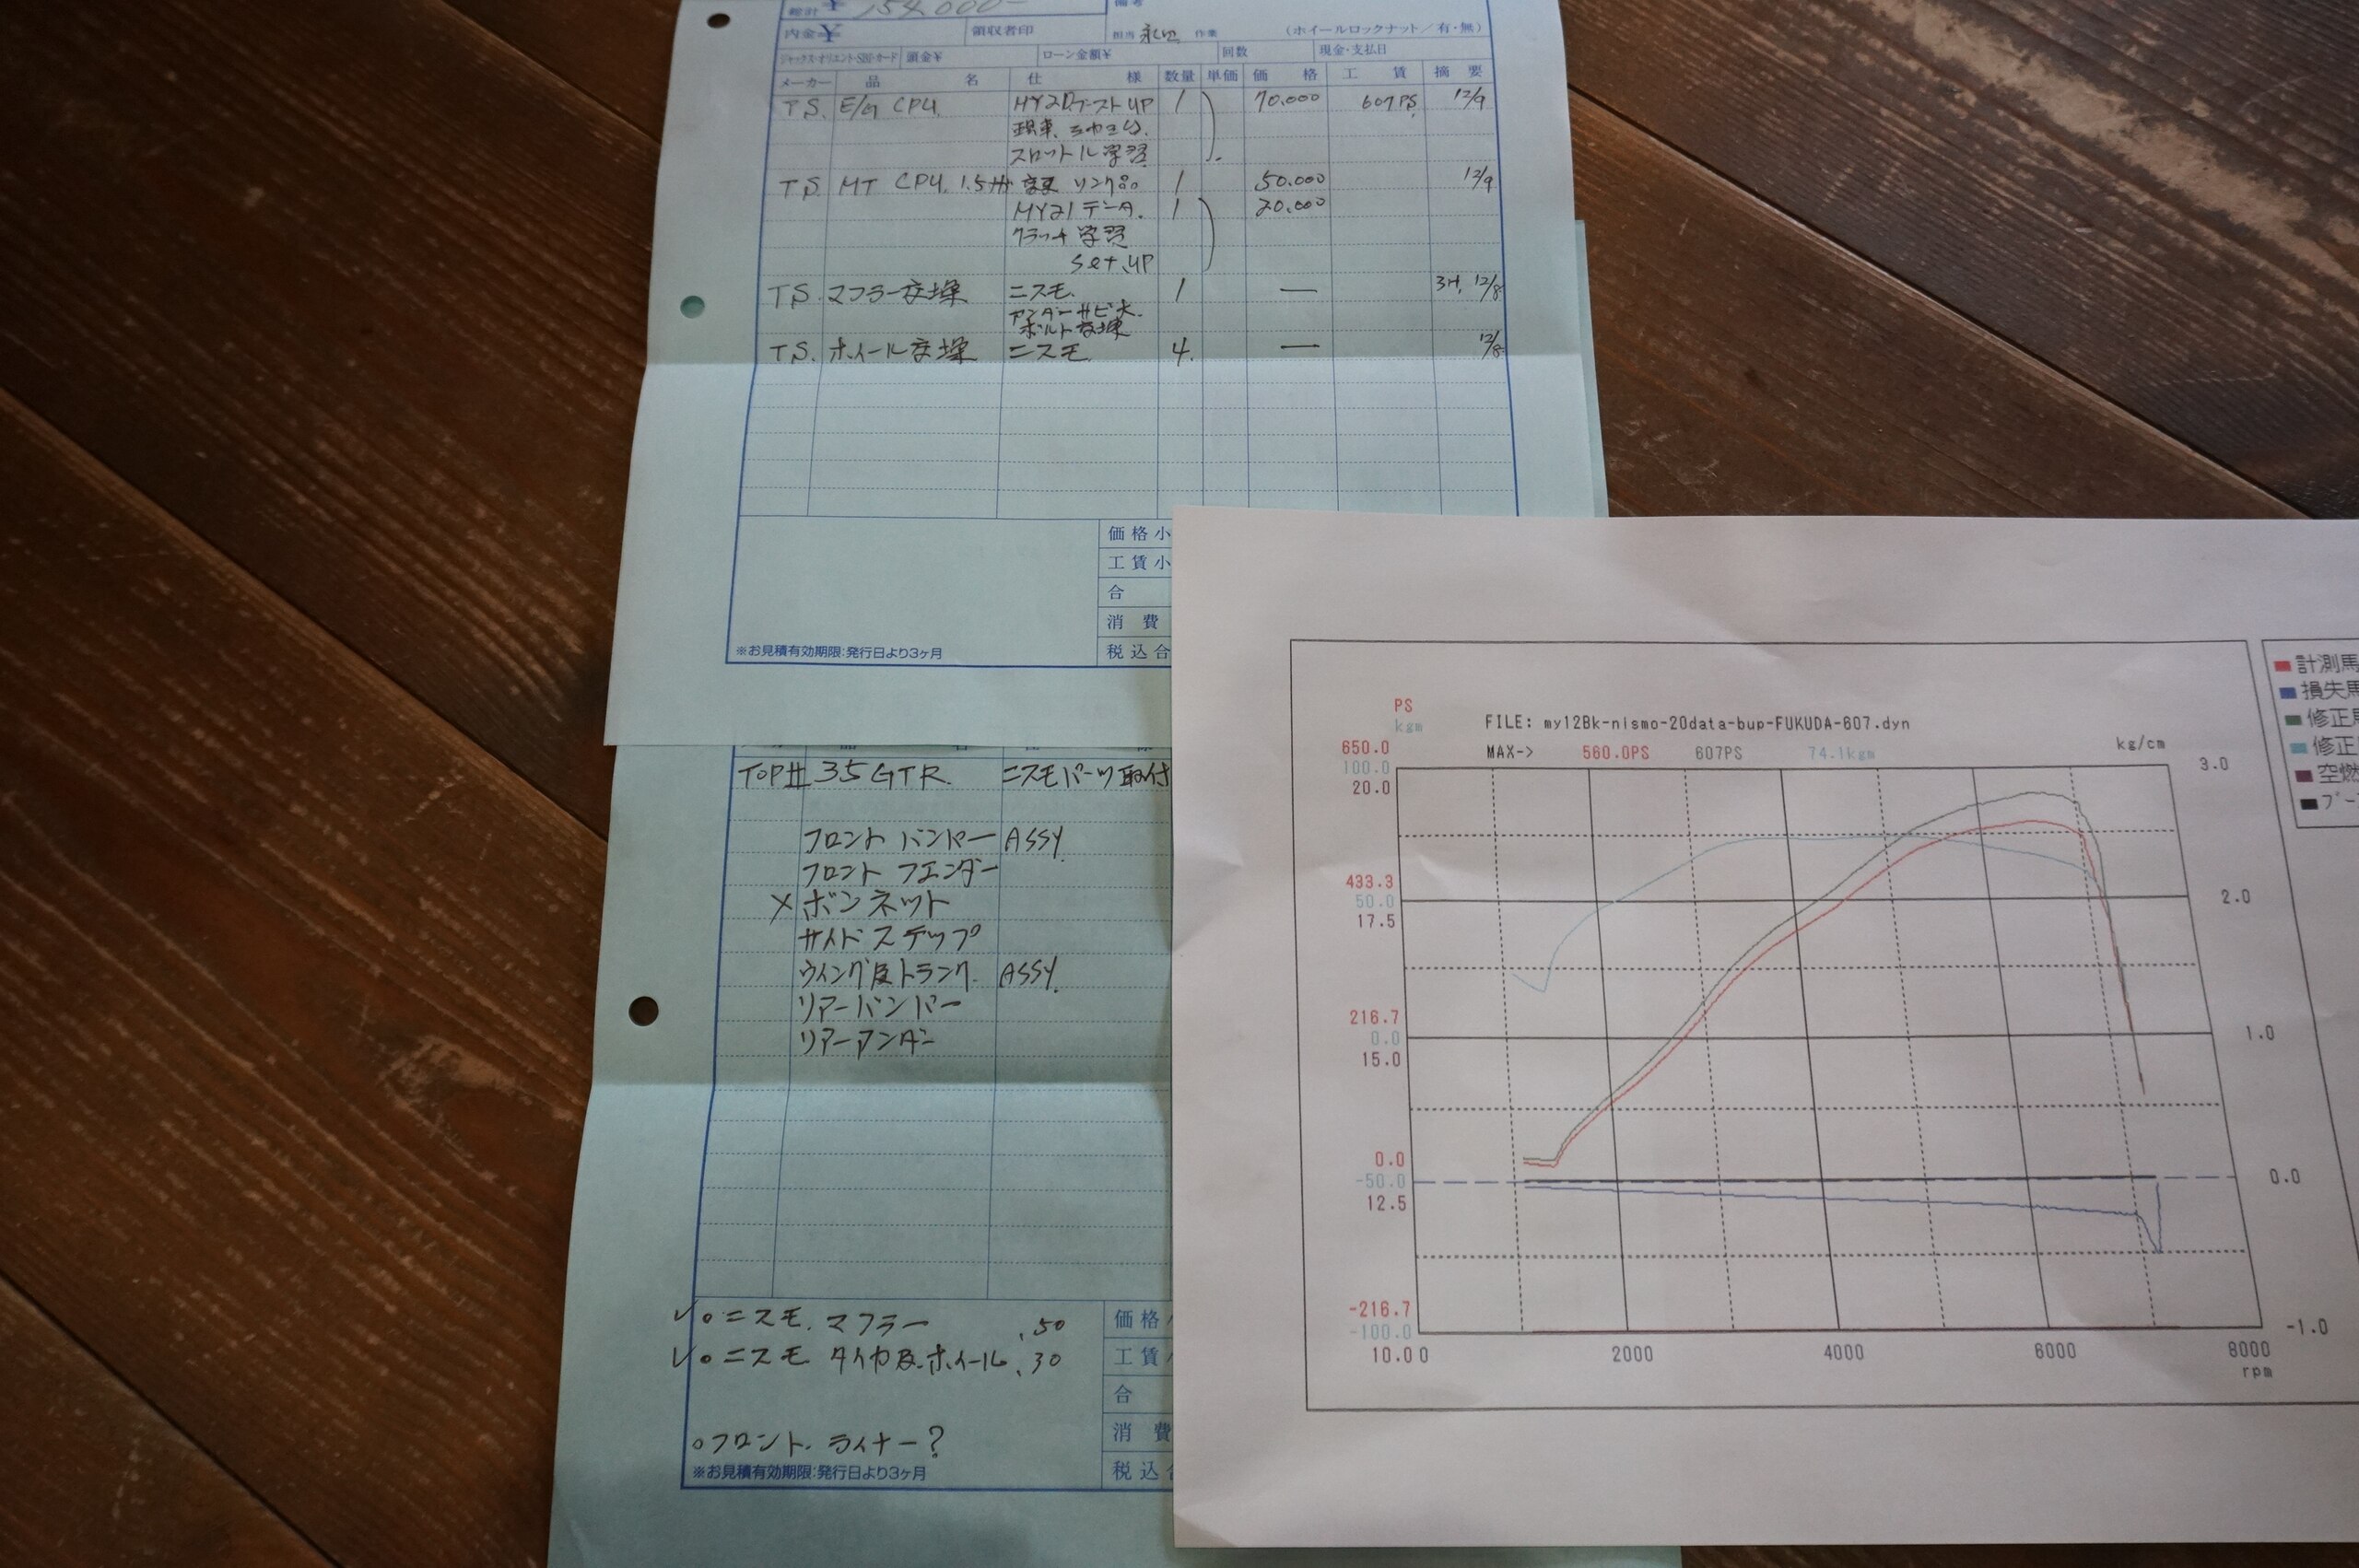 総計 ¥ 154,000-
備考
内金 ¥ 領収者印 担当 作業 (ホイールロックナット/有・無)
頭金¥ ローン金額¥ 回数 現金・支払日
メーカー 品名 仕様 数量 単価 価格 工賃 摘要
T.S. E/G CPU. MY20ブーストUP 1 70.000 607PS 12/9
現車
スロットル学習
T.S MT CPU. 1.5 変更 1 50.000 12/9
MY21データ. 1 20.000
クラッチ学習
set.up
T.S. マフラー交換 ニスモ. 1 — 3H, 12/8
アンダーサビ大.
ボルト交換
T.S. ホイール交換 ニスモ 4. — 12/8
価格小
工賃小
合
消費
※お見積有効期限:発行日より3ヶ月 税込合
35GTR. ニスモパーツ取付
フロント バンパー ASSY.
フロント フェンダー
×ボンネット
サイドステップ
ウイング及トランク. ASSY.
リアーバンパー
リアーアンダー
✓○ニスモ. マフラー .50
✓○ニスモ タイヤ及.ホイール .30
○フロント. ライナー?
※お見積有効期限:発行日より3ヶ月
価格
工賃
合
消費
税込合
PS
kgm
FILE: my12Bk-nismo-20data-bup-FUKUDA-607.dyn
MAX-> 560.0PS 607PS 74.1kgm
kg/cm
650.0
100.0
20.0
3.0
433.3
50.0
17.5
2.0
216.7
0.0
15.0
1.0
0.0
-50.0
12.5
0.0
-216.7
-100.0
10.0
-1.0
0 2000 4000 6000 8000
rpm
計測馬
損失馬
修正馬
修正
空燃
ブー